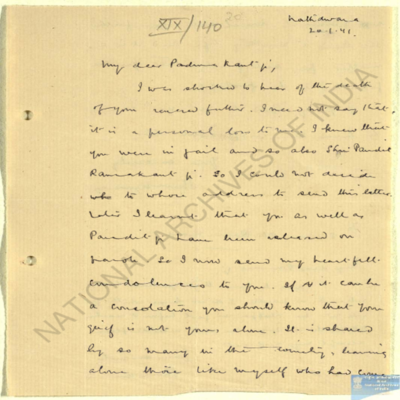 XIX/140
20
Nathdwara
20.1.41.
My dear Padma Kant ji,
I was shocked to hear of the death
of your revered father. I need not say that
it is a personal loss to me. I knew that
you were in jail and so also Shri Pandit
Ramakant ji. So I could not decide
who to whose address to send this letter.
I learned that you as well as
Pandit ji have been released on
parole. So I now send my heartfelt
condolences to you. If it can be
a consolation you should know that your
grief is not yours alone. It is shared
by so many in the country, leaving
alone those like myself who had come
NATIONAL ARCHIVES OF INDIA